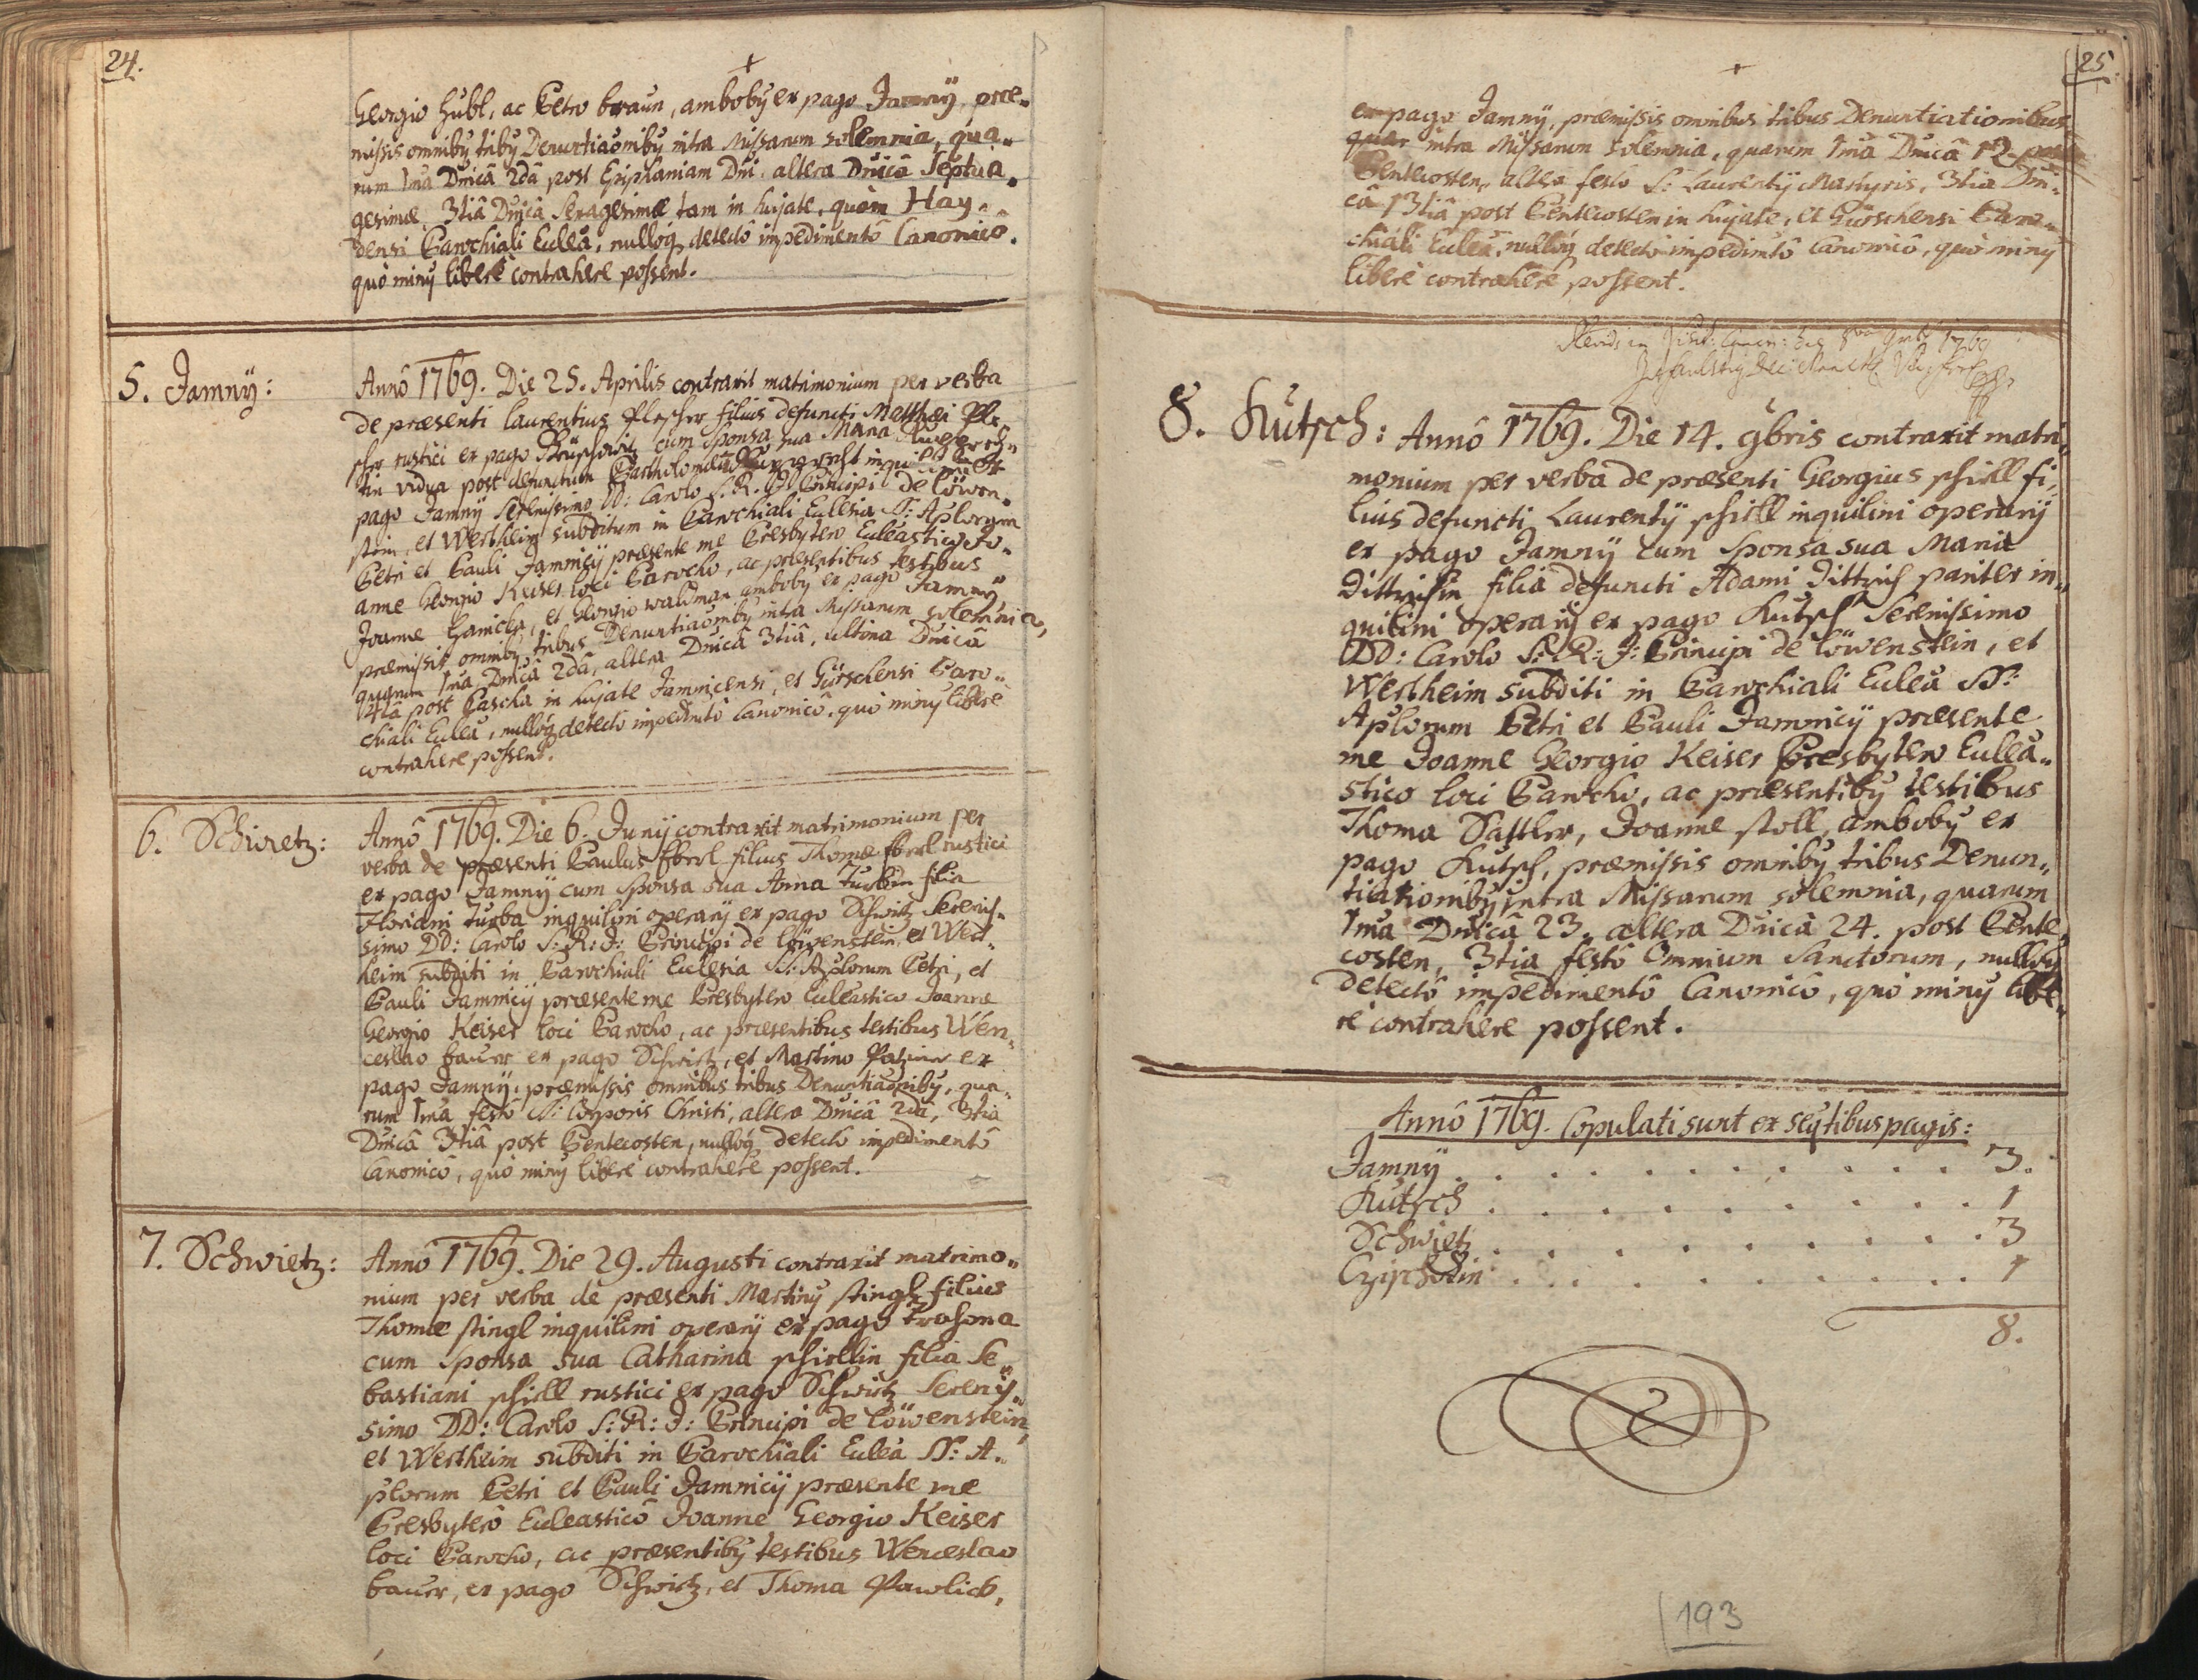 24.
Georgio Hübl, ac Petro braun, amboby ex pago Jamnÿ, præ-
missis omniby triby Denuntiaõniby intra Missarum solemnia, qua-
rum 1ma Dnicâ 2dâ post Epiphaniam Dni. altera Dnicâ Septua-
gesimæ, 3tiâ Dnicâ Sexagesimæ tam in hujate, quàm Hay-
densi Parochiali Eccleâ, nullóq detectô impedimentô Canonico.
quò miny liberè contrahere possent.
5. Jamnÿ:
Annô 1769. Die 25. Aprilis contraxit matrimonium per verba
de præsenti laurentius Plescher filius defuncti Matthæi Ple-
scher rustici ex pago cum Sponsa sua Maria
tin vidua post defunctum Bartholomæum inquilinum ex
pago Jamnÿ Serenissimo DD: Carolo S. R. J. Principi de löwen-
stein, et Wertheim subditum in Parochiali Ecclesia SS: Aplorum
Petri et Pauli Jamnicÿ præsente me Presbytero Eccleastico Jo-
anne Georgio Keiser loci Parocho, ac præsentibus testibus
Joanne Hanicka, et Georgio waldman amboby ex pago Jamnÿ
præmissis omniby tribus Denuntiaõniby intra Missarum solemnia,
quarum 1ma Dnicâ 2dâ, altera Dnicâ 3tiâ, ultima Dnicâ
4tâ post Pascha in hujate Jamnicensi, et Gürschensi Paro-
chiali Eccleâ, nullóq detectô impedimtô Canonicô. quò miny liberè
contrahere possent.
6. Schwietz:
Annô 1769. Die 6. Junÿ contraxit matrimonium per
verba de præsenti Paulus Eberl filius Thomæ Eberl rustici
ex pago Jamnÿ cum Sponsa sua Anna Turbin filia
Floriani Turba inquilini operarÿ ex pago Schwitz Serenis-
simo DD: Carolo S: R: J: Principi de löwenstein, et Wert-
heim subditi in Parochiali Ecclesia SS: Aplorum Petri, et
Pauli Jamnicÿ præsente me Presbytero Eccleastico Joanne
Georgio Keiser loci Parocho, ac præsentibus testibus Wen-
ceslao bauer ex pago Schwitz, et Martino Patziner ex
pago Jamnÿ, præmissis omnibus tribus Denuntiaõniby, qua-
rum 1ma festô SS: Corporis Christi, altera Dnicâ 2dâ, 3tia
Dnicâ 3tiâ post Pentecosten, nullóq detectô impedimentô
Canonicô, quò miny liberè contrahere possent.
7. Schwietz:
Annô 1769. Die 29. Augusti contraxit matrimo-
nium per verba de præsenti Martiny stingl filius
Thomæ stingl inquilini operarÿ ex pago trahona
cum Sponsa sua Catharina schirllin filia Se-
bastiani schirll rustici ex pago Schwitz Serenis-
simo DD: Carolo S: R: J: Principi de löwenstein,
et Wertheim subditi in Parochiali Eccleâ SS: A-
plorum Petri et Pauli Jamnicÿ præsente me
Presbyterô Eccleasticô Joanne Georgio Keiser
loci Parocho, ac præsentiby testibus Wenceslao
bauer, ex pago Schwitz, et Thoma Pawlick,
25
ex pago Jamnÿ, præmissis omnibus tribus Denuntiationibus
intra Missarum solemnia, quarum 1ma Dnicâ 12 post
Pentecosten, altera festo S: Laurentÿ Martyris, 3tia Dni-
câ 13tiâ post Pentecosten in hujate, et Gürschensi Paro-
chiali Eccleâ, nullóq detectô impedimtô canonicô, quò miny
liberè contrahere possent.
8. Kutsch:
Annô 1769. Die 14. 9bris contraxit matri-
monium per verba de præsenti Georgius schirll fi-
lius defuncti Laurentÿ schirll inquilini operarÿ
ex pago Jamnÿ cum Sponsa sua Maria
Dittrichin filia defuncti Adami Dittrich pariter in-
quilini operarÿ ex pago Kutsch Serenissimo
DD: Carolo S: R: J: Principi de löwenstein, et
Wertheim subditi in Parochiali Eccleâ SS:
Aplorum Petri et Pauli Jamnicÿ præsente
me Joanne Georgio Keiser Presbytero Ecclea-
stico loci Parocho, ac præsentiby testibus
Thoma Sattler, Joanne stoll, amboby ex
pago Kutsch, præmissis omniby tribus Denun-
tiationiby intra Missarum solemnia, quarum
1ma Dnicâ 23. altera Dnicâ 24. post Pente-
costen, 3tia festô Omnium Sanctorum, nullóq
detectô impedimentô Canonicô, quò miny libe-
rè contrahere possent.
Annô 1769. Copulati sunt ex seqtibus pagis:
Jamnÿ . . . . . . . . . . 3.
Kutsch . . . . . . . . . . 1
Schwietz . . . . . . . . . 3
Cziescholin . . . . . . . . . . 1
8.
193